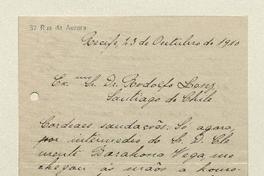 37 Rua da Aurora
Recife, 23 de Outubro de 1910
Ex.mo S. Dr. Rodolfo Lenz
Santiago de Chile
Cordeaes saudações. So agora,
por intermedio do S. D. Cle
mente Barahona Vega me
chegou às mãos a honro-